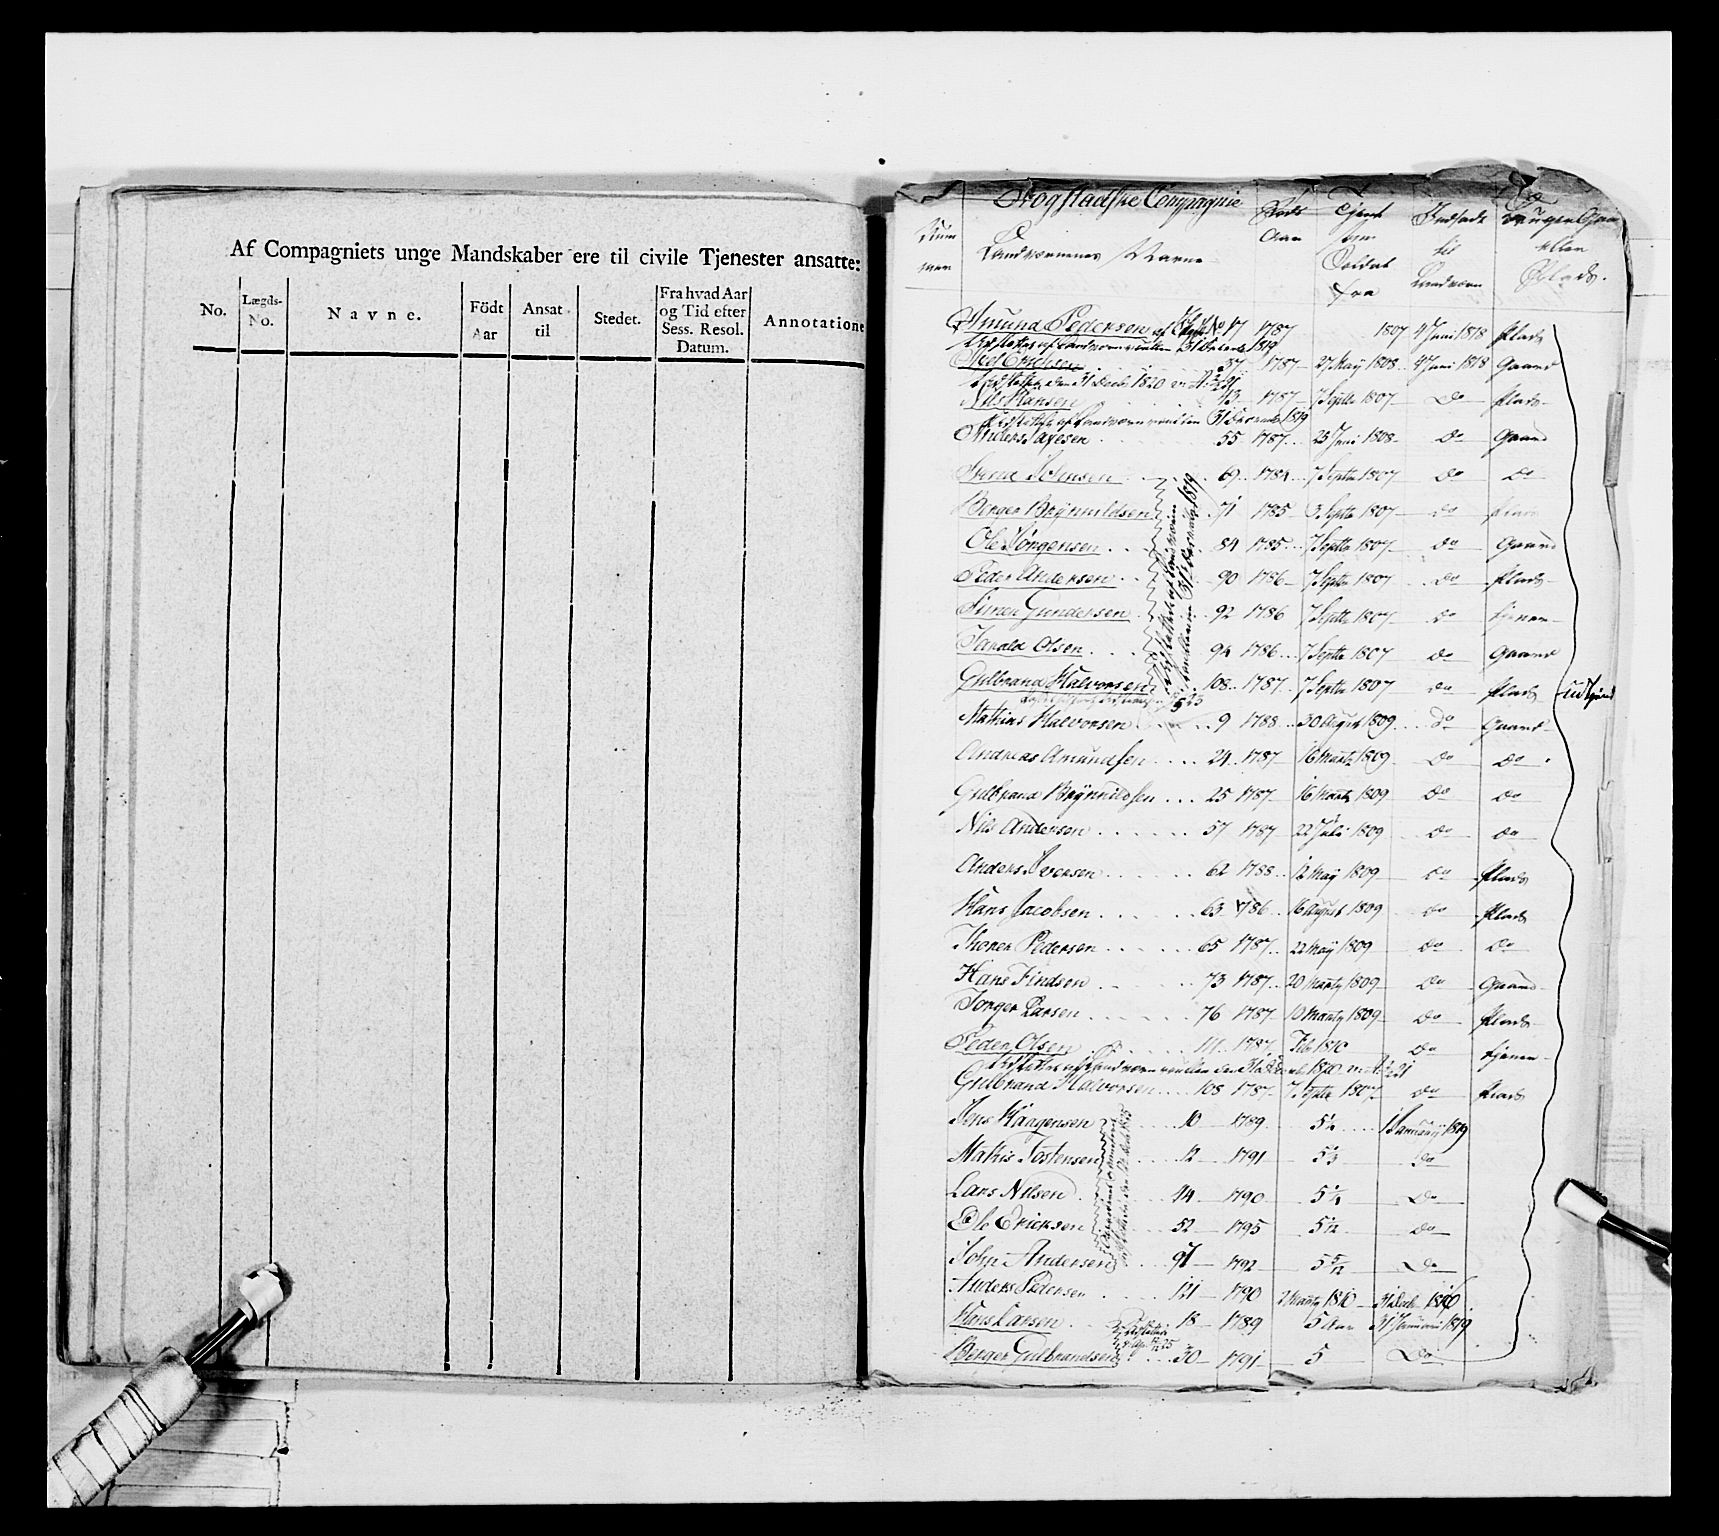 Af Compagniets unge Mandskaber ere til civile Tjenester ansatte:
No.
Lægds-
No.
Navne.
Födt
Aar
Ansat
til
Stedet.
Fra hvad Aar
og Tid efter
Sess. Resol.
Datum.
Annotatione
Compagnie
Num
mer
Navne
Föds
Aar
Tjent
som
Soldat
fra
Indsadt
til
Landværn
Gaard
eller
Plads.
Amund Pedersen No 17 1787 1807 4 Juni 1818 Plads
37 1787 27 May 1808 4 Juni 1818 Gaard
Nils Hansen 43 1787 7 Septbr 1807 Do Plads
Anders 55 1787 25 Juni 1808 Do Gaard
69 1784 7 Septbr 1807 Do Do
Berger Brynnildsen 71 1785 3 Septbr 1807 Do Plads
Ole Jörgensen 84 1785 7 Septbr 1807 Do Gaard
Peder Andersen 90 1786 7 Septbr 1807 Do Plads
Simen Gundersen 92 1786 7 Septbr 1807 Do tjener
Harald Olsen 94 1786 7 Septbr 1807 Do Gaard
Gulbrand Halvorsen 108 1787 7 Septbr 1807 Do Plads udtjent
Mathias Halvorsen 9 1788 30 August 1809 Do Gaard
Andreas Amundsen 24 1787 16 Martz 1809 Do Do
Gulbrand Brynnildsen 25 1787 16 Martz 1809 Do Do
Nils Andersen 57 1787 22 Juli 1809 Do Do
Anders Iversen 62 1788 12 May 1809 Do Plads
Hans Jacobsen 63 1786 16 August 1809 Do Plads
Thorer Pedersen 65 1787 22 May 1809 Do Do
Hans Findsen 73 1787 20 Martz 1809 Do Gaard
Torger Larsen 76 1787 10 Martz 1809 Do Plads
Peder Olsen 111 1787 Feb 1810 Do tjener
Gulbrand Halvorsen 108 1787 7 Septbr 1807 Do Plads
Jens Haagensen 10 1789 1 Januarij 1819
Mathis Tostensen 12 1791 Do
Lars Nilsen 44 1790 5 1/2 Do
Ole Ericksen 52 1795 Do
John Andersen 97 1792 5 5/12 Do
Anders Pedersen 121 1790 2 Martz 1810 31 Decb
Hans Larsen 18 1789 5 Aar 31 Januari 1819
Berger Gulbrandsen 30 1791 5 Do